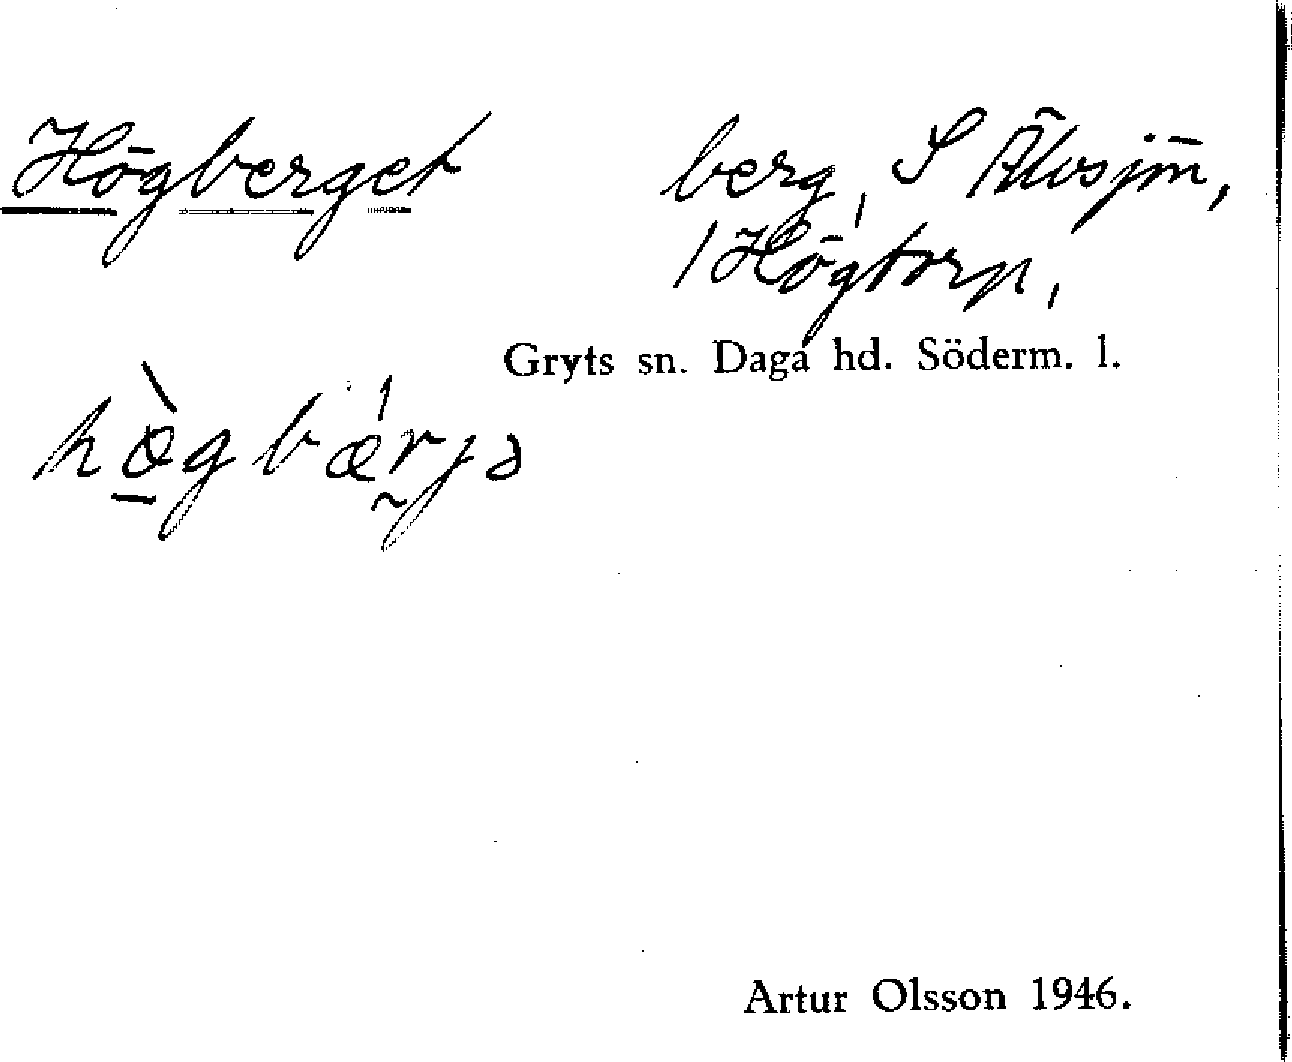 Högberget berg, S Älvsjön,
/ Högtorp,
Gryts sn. Daga hd. Söderm. l.
hø̀gbærjə
Artur Olsson 1946.